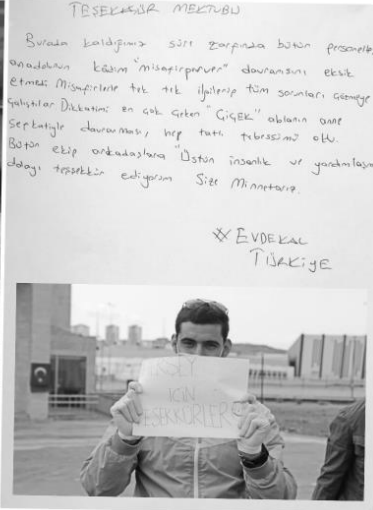 TEŞEKKÜR MEKTUBU
Burada kaldığımız süre zarfında bütün personeller
anadolunun kadim "misafirperver" davranışını eksik
etmedi Misafirlerle tek tek ilgilenip tüm sorunları çözmeye
çalıştılar Dikkatimi en çok çeken "ÇİÇEK" ablanın anne
şefkatiyle davranması, hep tatlı tebessümü oldu.
Bütün ekip arkadaşlara "Üstün insanlık ve yardımlaşma
teşekkür ediyorum Size Minnettarız.
#EVDEKAL
TÜRKİYE
İÇİN
TEŞEKKÜRLER